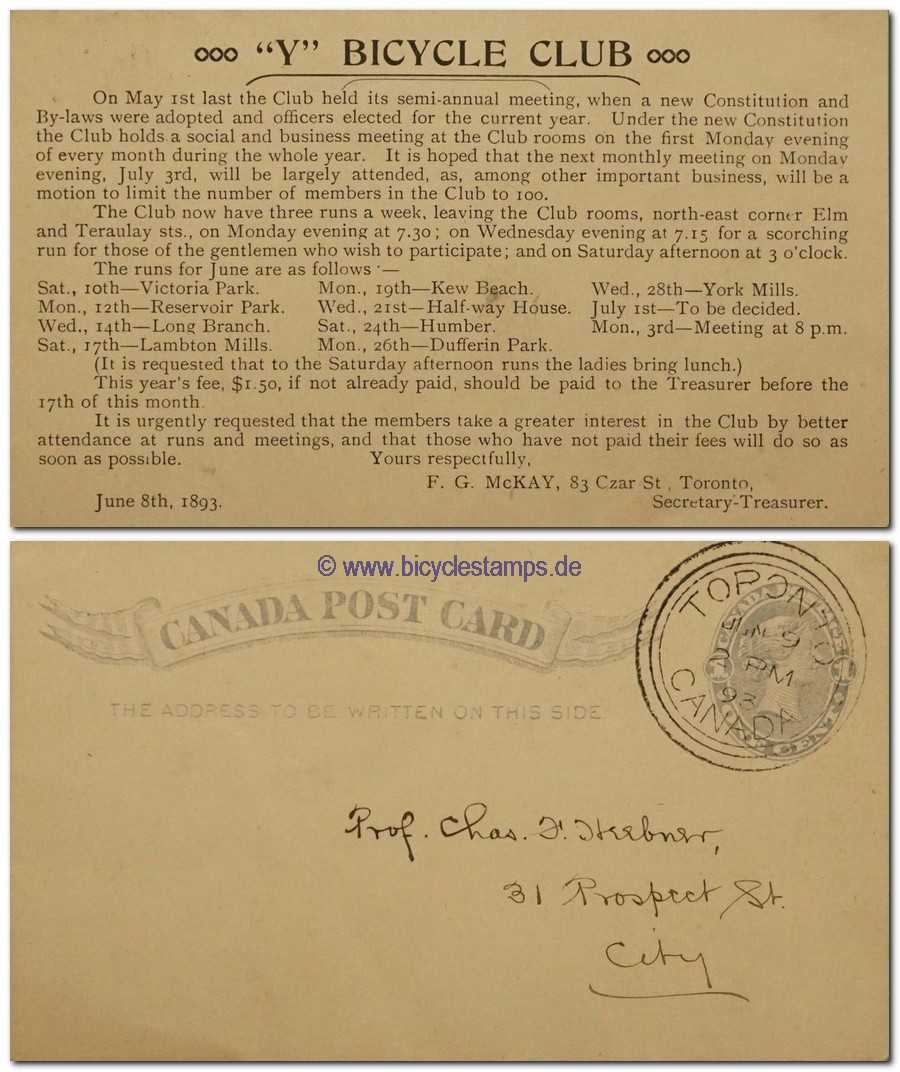 "Y" BICYCLE CLUB
On May 1st last the Club held its semi-annual meeting, when a new Constitution and
By-laws were adopted and officers elected for the current year. Under the new Constitution
the Club holds a social and business meeting at the Club rooms on the first Monday evening
of every month during the whole year. It is hoped that the next monthly meeting on Monday
evening, July 3rd, will be largely attended, as, among other important business, will be a
motion to limit the number of members in the Club to 100.
The Club now have three runs a week, leaving the Club rooms, north-east corner Elm
and Teraulay sts., on Monday evening at 7.30; on Wednesday evening at 7.15 for a scorching
run for those of the gentlemen who wish to participate; and on Saturday afternoon at 3 o'clock.
The runs for June are as follows:—
Sat., 10th—Victoria Park. Mon., 19th—Kew Beach. Wed., 28th—York Mills.
Mon., 12th—Reservoir Park. Wed., 21st—Half-way House. July 1st—To be decided.
Wed., 14th—Long Branch. Sat., 24th—Humber. Mon., 3rd—Meeting at 8 p.m.
Sat., 17th—Lambton Mills. Mon., 26th—Dufferin Park.
(It is requested that to the Saturday afternoon runs the ladies bring lunch.)
This year's fee, $1.50, if not already paid, should be paid to the Treasurer before the
17th of this month.
It is urgently requested that the members take a greater interest in the Club by better
attendance at runs and meetings, and that those who have not paid their fees will do so as
soon as possible. Yours respectfully,
F. G. McKAY, 83 Czar St., Toronto,
June 8th, 1893. Secretary-Treasurer.
© www.bicyclestamps.de
CANADA POST CARD
THE ADDRESS TO BE WRITTEN ON THIS SIDE
TORONTO
JUN 9
PM
93
CANADA
Prof. Chas. F. Heebner,
31 Prospect St.
City